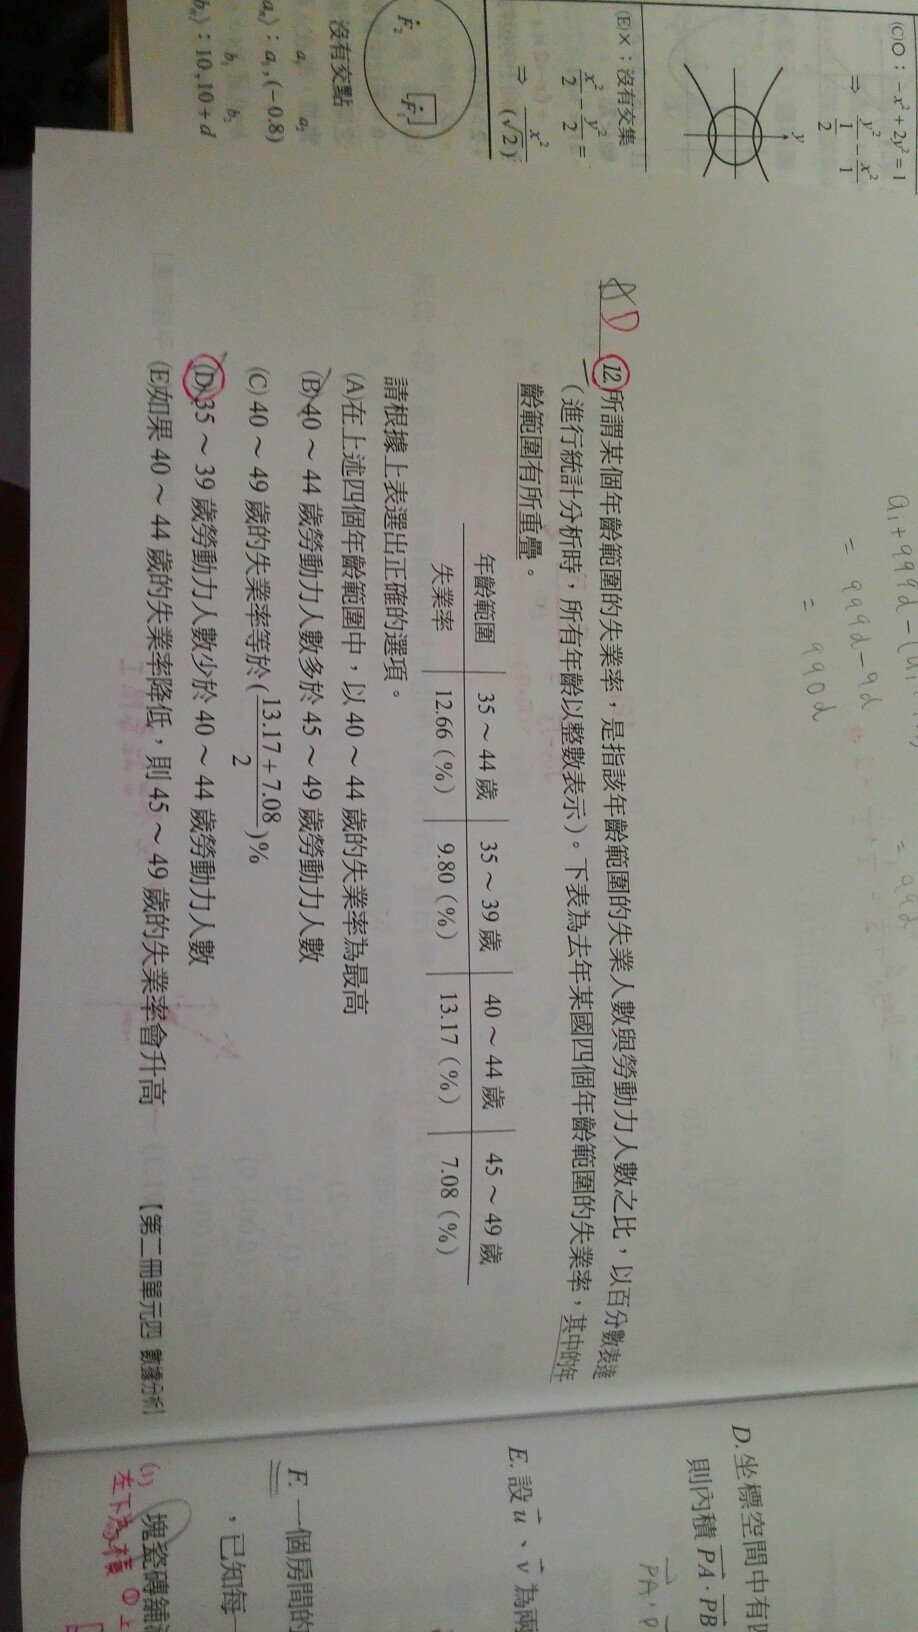 (C)○：-x²+2y²=1
⇒ y²/(1/2) - x²/1
y
(E)×：沒有交集
x²/2 - y²/2 =
⇒ x²/(√2)
F₂ F₁
沒有交點
a₁ a₂
aₙ)：a₁,(-0.8)
b₁ b₂
bₙ)：10,10+d
= 999d-9d
= 990d
AD 12.所謂某個年齡範圍的失業率，是指該年齡範圍的失業人數與勞動力人數之比，以百分數表達
（進行統計分析時，所有年齡以整數表示）。下表為去年某國四個年齡範圍的失業率，其中的年
齡範圍有所重疊。
年齡範圍 35～44歲 35～39歲 40～44歲 45～49歲
失業率 12.66（%） 9.80（%） 13.17（%） 7.08（%）
請根據上表選出正確的選項。
(A)在上述四個年齡範圍中，以40～44歲的失業率為最高
(B)40～44歲勞動力人數多於45～49歲勞動力人數
(C)40～49歲的失業率等於((13.17+7.08)/2)%
(D)35～39歲勞動力人數少於40～44歲勞動力人數
(E)如果40～44歲的失業率降低，則45～49歲的失業率會升高
【第二冊單元四 數據分析】
D.坐標空間中有四
則內積PA·PB
PA·P
E.設u、v為兩
F.一個房間的
，已知每一
塊瓷磚舖
(1)
左下為橫 ① 上